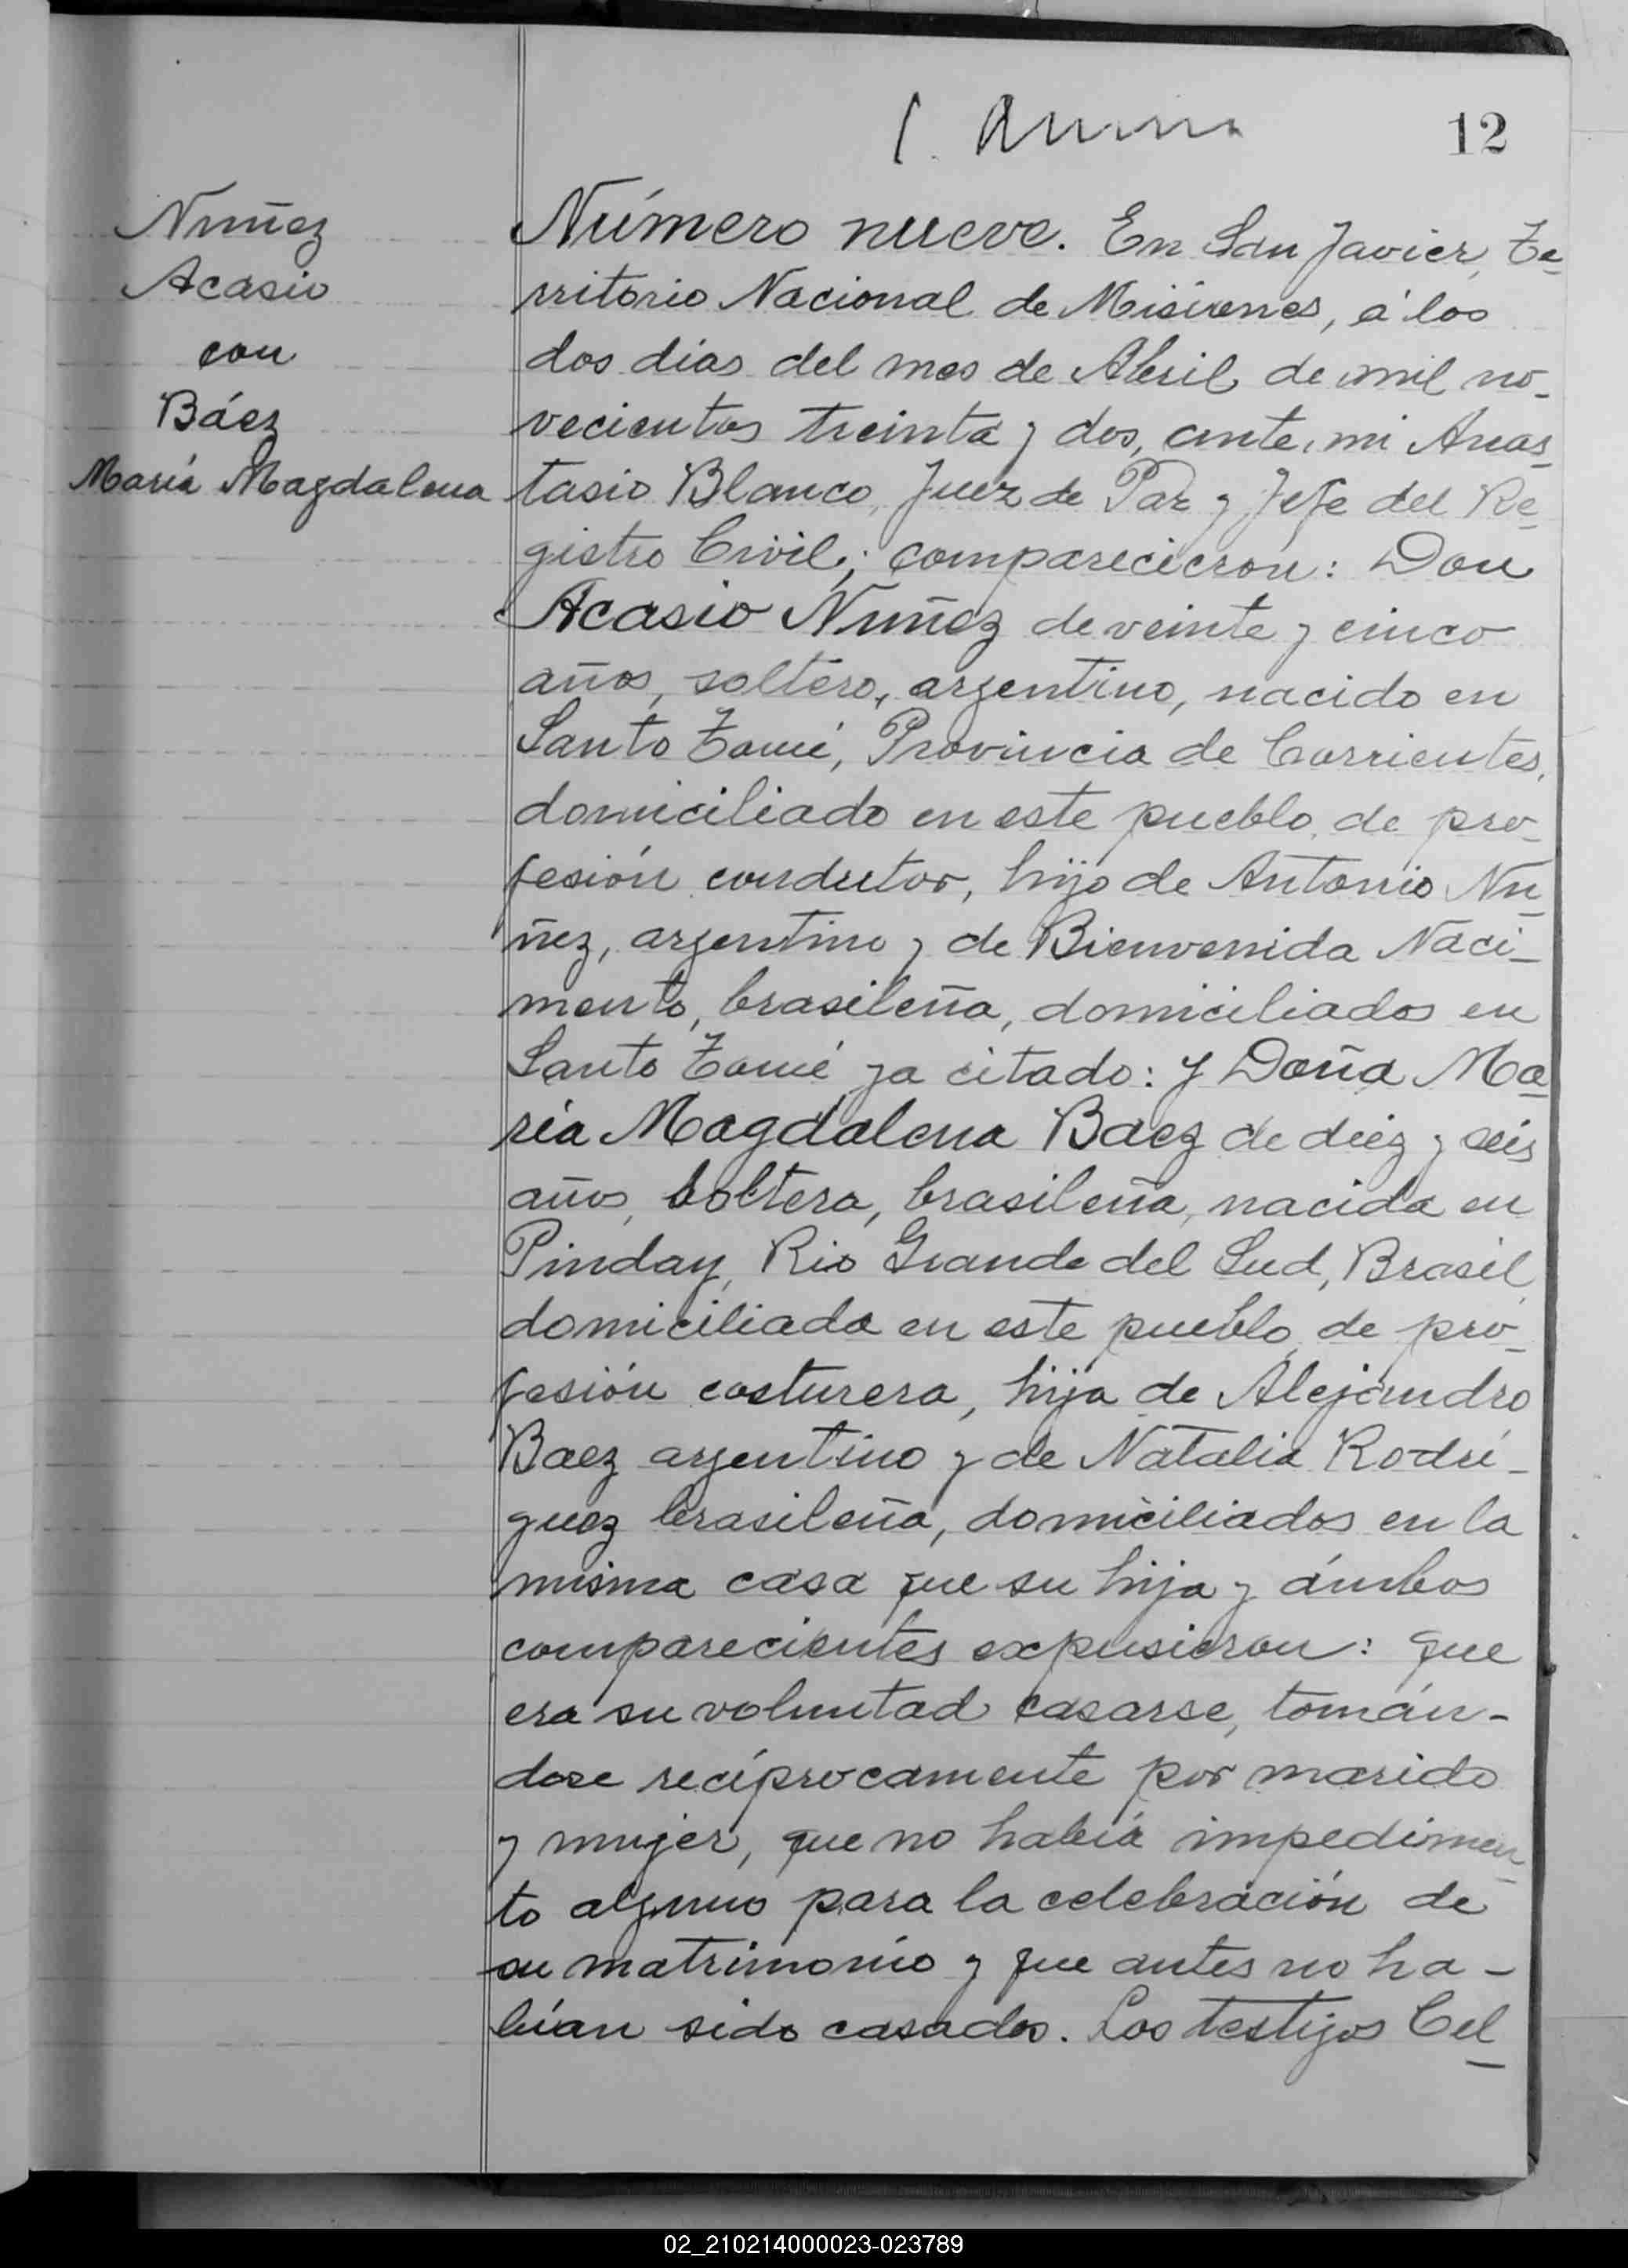 12
Nuñez
Acasio
con
Báez
María Magdalena
Número nueve. En San Javier, Te-
rritorio Nacional de Misiones, á los
dos dias del mes de Abril de mil no-
vecientos treinta y dos, ante mi Anas-
tasio Blanco, Juez de Paz y Jefe del Re-
gistro Civil; comparecieron: Don
Acasio Nuñez de veinte y cinco
años, soltero, argentino, nacido en
Santo Tomé, Provincia de Corrientes,
domiciliado en este pueblo, de pro-
fesión conductor, hijo de Antonio Nu-
ñez, argentino y de Bienvenida Naci-
mento, brasileña, domiciliados en
Santo Tomé ya citado: y Doña Ma-
ría Magdalena Baez de diez y seis
años, soltera, brasileña, nacida en
Pinday, Rio Grande del Sud, Brasil,
domiciliada en este pueblo, de pro-
fesión costurera, hija de Alejandro
Baez argentino y de Natalia Rodrí-
guez brasileña, domiciliados en la
misma casa que su hija y ámbos
comparecientes expusieron: que
era su voluntad casarse, tomán-
dose recíprocamente por marido
y mujer, que no había impedimen-
to alguno para la celebración de
su matrimonio y que antes no ha-
bían sido casados. Los testigos Cel-
02_210214000023-023789